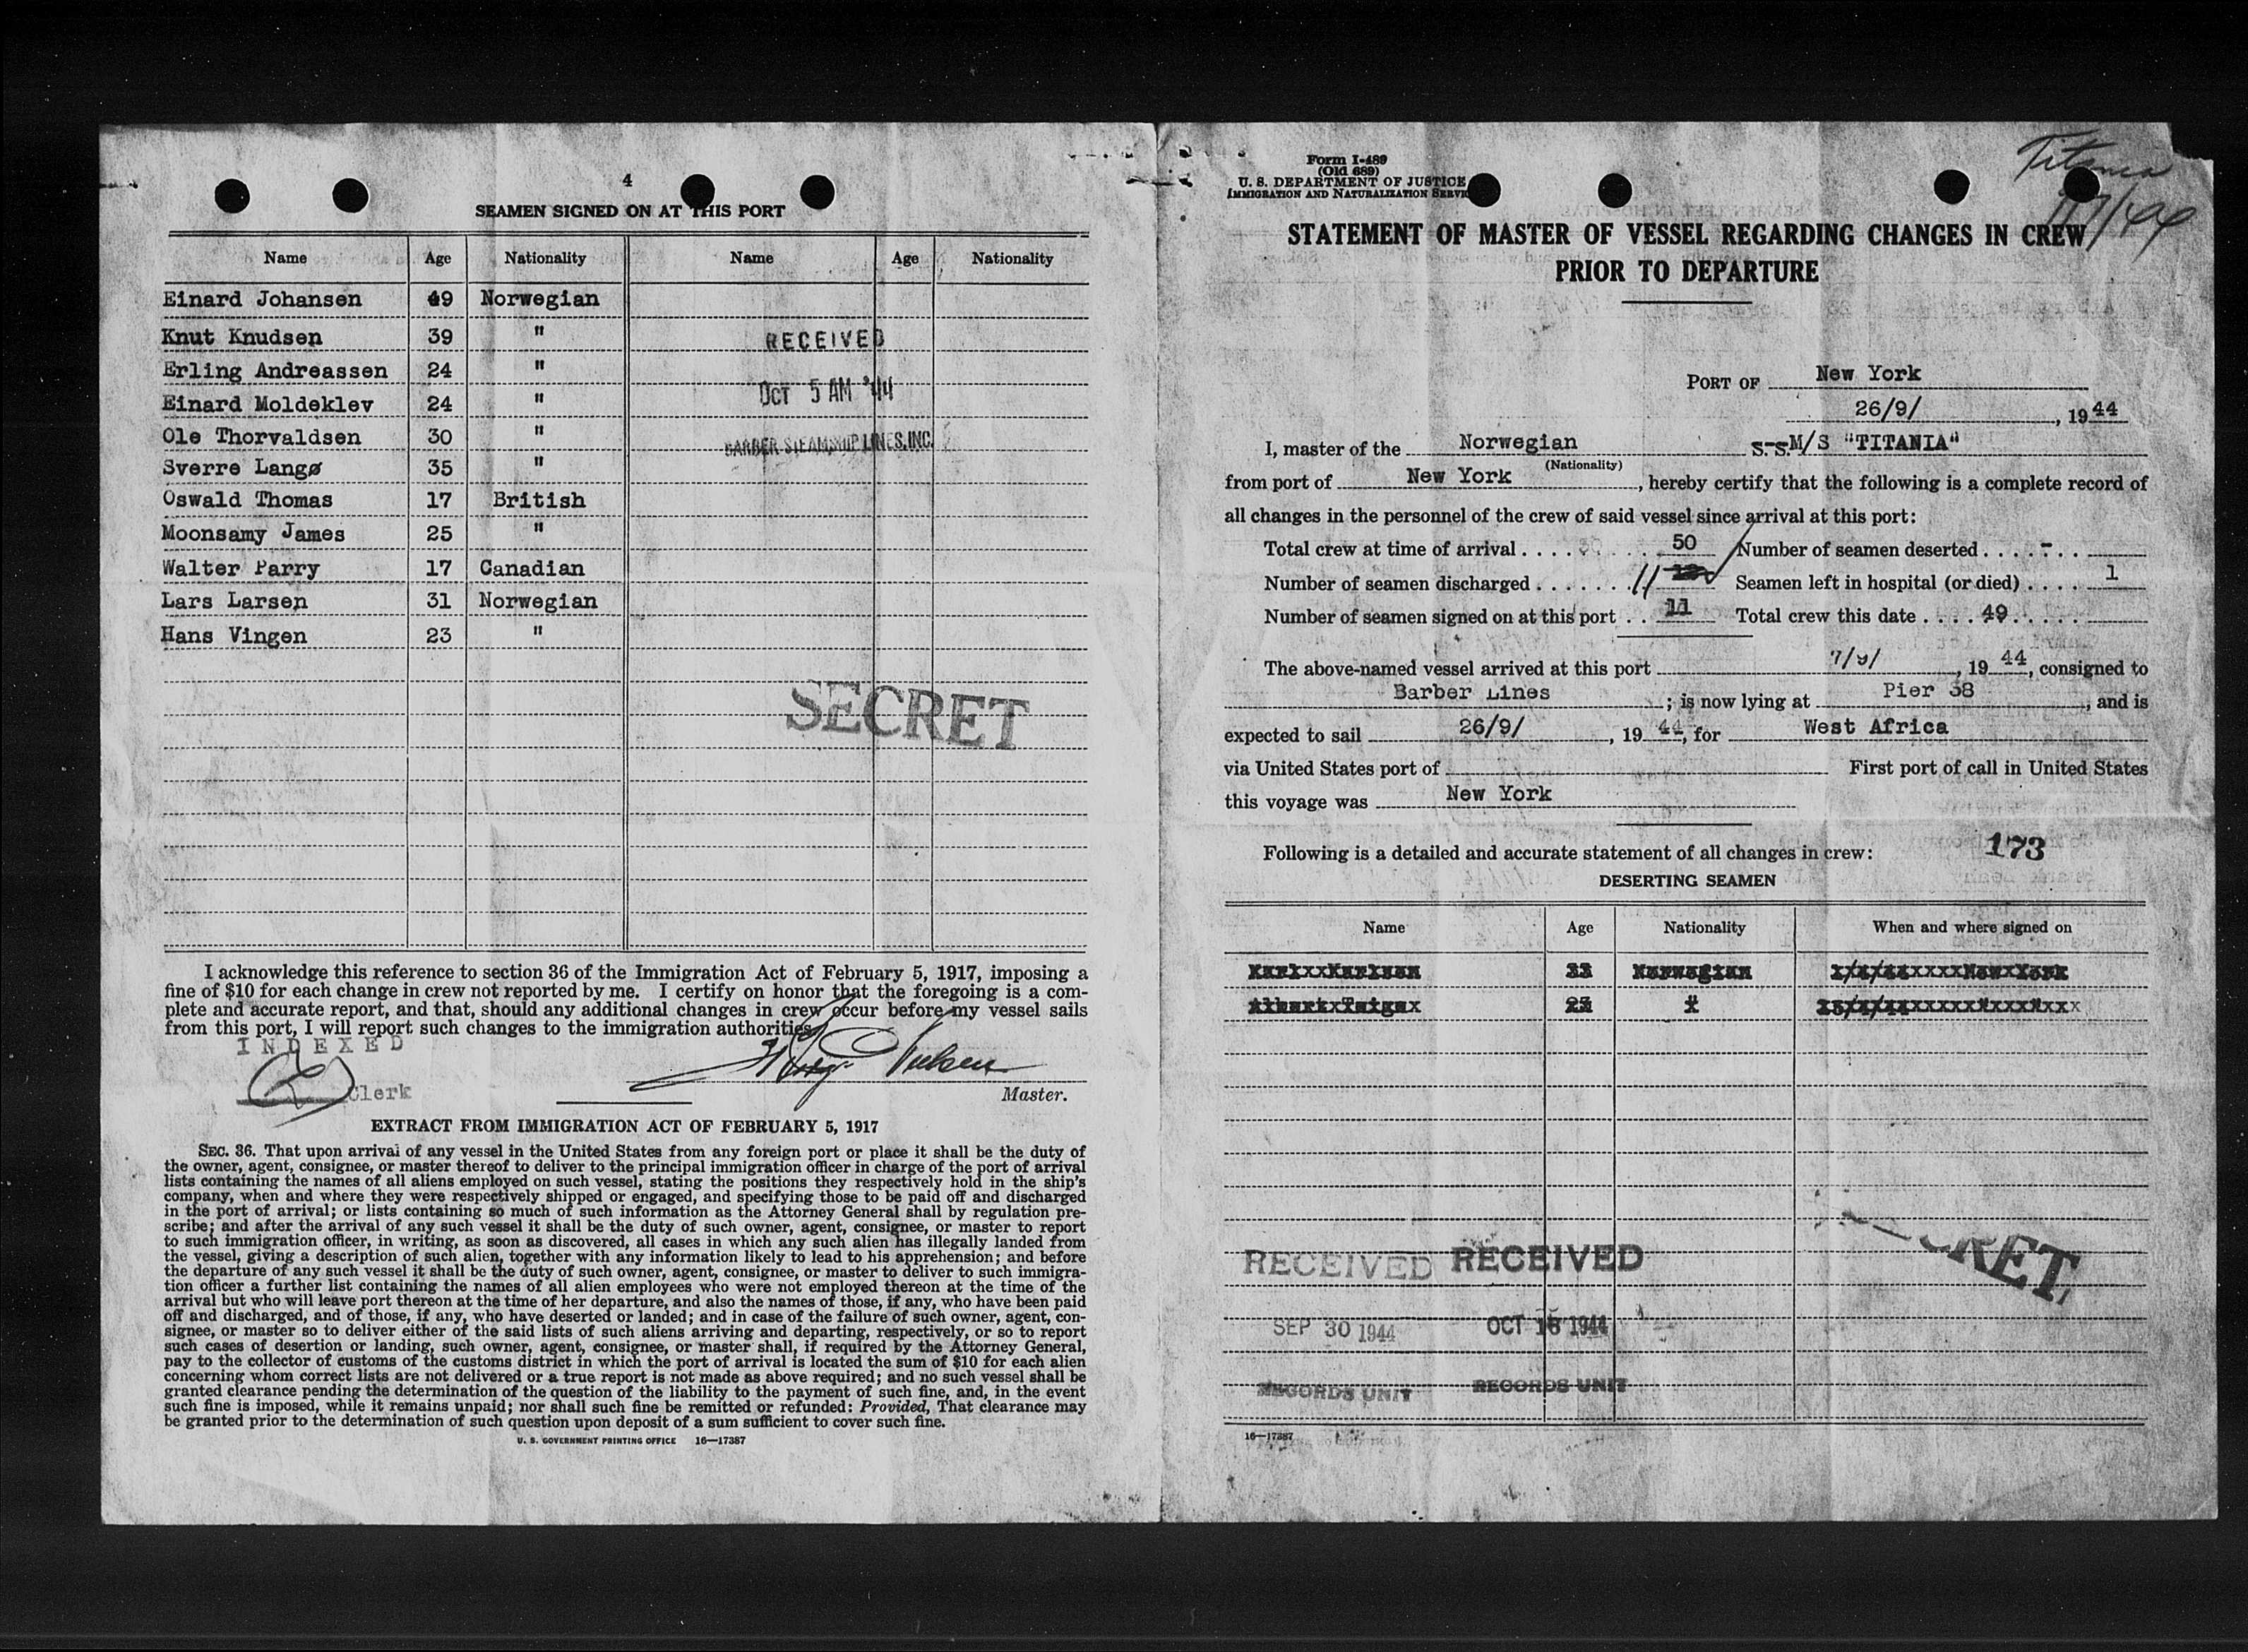 4
SEAMEN SIGNED ON AT THIS PORT
Name Age Nationality Name Age Nationality
Einard Johansen 49 Norwegian
Knut Knudsen 39 "
Erling Andreassen 24 "
Einard Moldeklev 24 "
Ole Thorvaldsen 30 "
Sverre Langø 35 "
Oswald Thomas 17 British
Moonsamy James 25 "
Walter Parry 17 Canadian
Lars Larsen 31 Norwegian
Hans Vingen 23 "
RECEIVED
OCT 5 AM '44
BARBER STEAMSHIP LINES, INC.
SECRET
I acknowledge this reference to section 36 of the Immigration Act of February 5, 1917, imposing a
fine of $10 for each change in crew not reported by me. I certify on honor that the foregoing is a com-
plete and accurate report, and that, should any additional changes in crew occur before my vessel sails
from this port, I will report such changes to the immigration authorities.
INDEXED
Clerk
Master.
EXTRACT FROM IMMIGRATION ACT OF FEBRUARY 5, 1917
SEC. 36. That upon arrival of any vessel in the United States from any foreign port or place it shall be the duty of
the owner, agent, consignee, or master thereof to deliver to the principal immigration officer in charge of the port of arrival
lists containing the names of all aliens employed on such vessel, stating the positions they respectively hold in the ship's
company, when and where they were respectively shipped or engaged, and specifying those to be paid off and discharged
in the port of arrival; or lists containing so much of such information as the Attorney General shall by regulation pre-
scribe; and after the arrival of any such vessel it shall be the duty of such owner, agent, consignee, or master to report
to such immigration officer, in writing, as soon as discovered, all cases in which any such alien has illegally landed from
the vessel, giving a description of such alien, together with any information likely to lead to his apprehension; and before
the departure of any such vessel it shall be the duty of such owner, agent, consignee, or master to deliver to such immigra-
tion officer a further list containing the names of all alien employees who were not employed thereon at the time of the
arrival but who will leave port thereon at the time of her departure, and also the names of those, if any, who have been paid
off and discharged, and of those, if any, who have deserted or landed; and in case of the failure of such owner, agent, con-
signee, or master so to deliver either of the said lists of such aliens arriving and departing, respectively, or so to report
such cases of desertion or landing, such owner, agent, consignee, or master shall, if required by the Attorney General,
pay to the collector of customs of the customs district in which the port of arrival is located the sum of $10 for each alien
concerning whom correct lists are not delivered or a true report is not made as above required; and no such vessel shall be
granted clearance pending the determination of the question of the liability to the payment of such fine, and, in the event
such fine is imposed, while it remains unpaid; nor shall such fine be remitted or refunded: Provided, That clearance may
be granted prior to the determination of such question upon deposit of a sum sufficient to cover such fine.
U. S. GOVERNMENT PRINTING OFFICE 16—17387
Form I-489
(Old 689)
U. S. DEPARTMENT OF JUSTICE
IMMIGRATION AND NATURALIZATION SERVICE
Titania
STATEMENT OF MASTER OF VESSEL REGARDING CHANGES IN CREW
PRIOR TO DEPARTURE
PORT OF New York
26/9/, 1944
I, master of the Norwegian S.S. M/S "TITANIA"
(Nationality)
from port of New York, hereby certify that the following is a complete record of
all changes in the personnel of the crew of said vessel since arrival at this port:
Total crew at time of arrival . . . . 50 Number of seamen deserted . . . . - . .
Number of seamen discharged . . . . . . . 11 Seamen left in hospital (or died) . . . . 1
Number of seamen signed on at this port . . 11 Total crew this date . . . . 49 . . . . .
The above-named vessel arrived at this port 7/9/, 1944, consigned to
Barber Lines; is now lying at Pier 38, and is
expected to sail 26/9/, 1944, for West Africa
via United States port of First port of call in United States
this voyage was New York
Following is a detailed and accurate statement of all changes in crew: 173
DESERTING SEAMEN
Name Age Nationality When and where signed on
RECEIVED RECEIVED
SEP 30 1944 OCT 16 1944
RECORDS UNIT RECORDS UNIT
16—17387